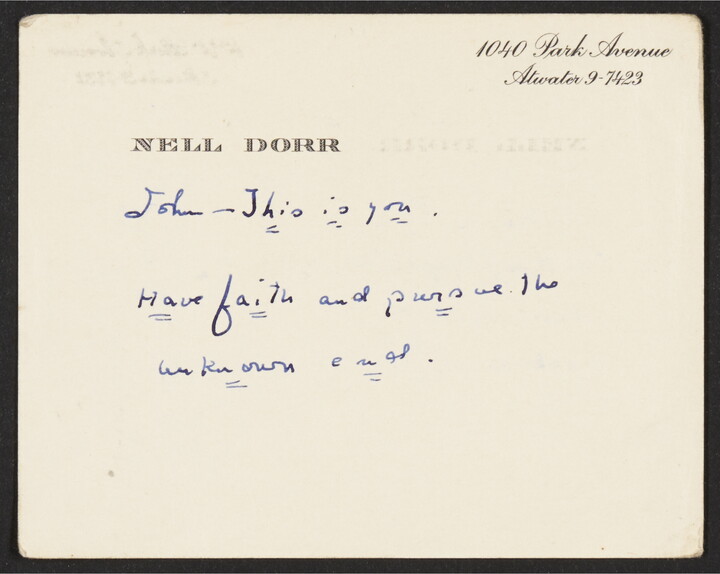 1040 Park Avenue
Atwater 9-7423
NELL DORR
John — This is you.
Have faith and pursue the
unknown end.